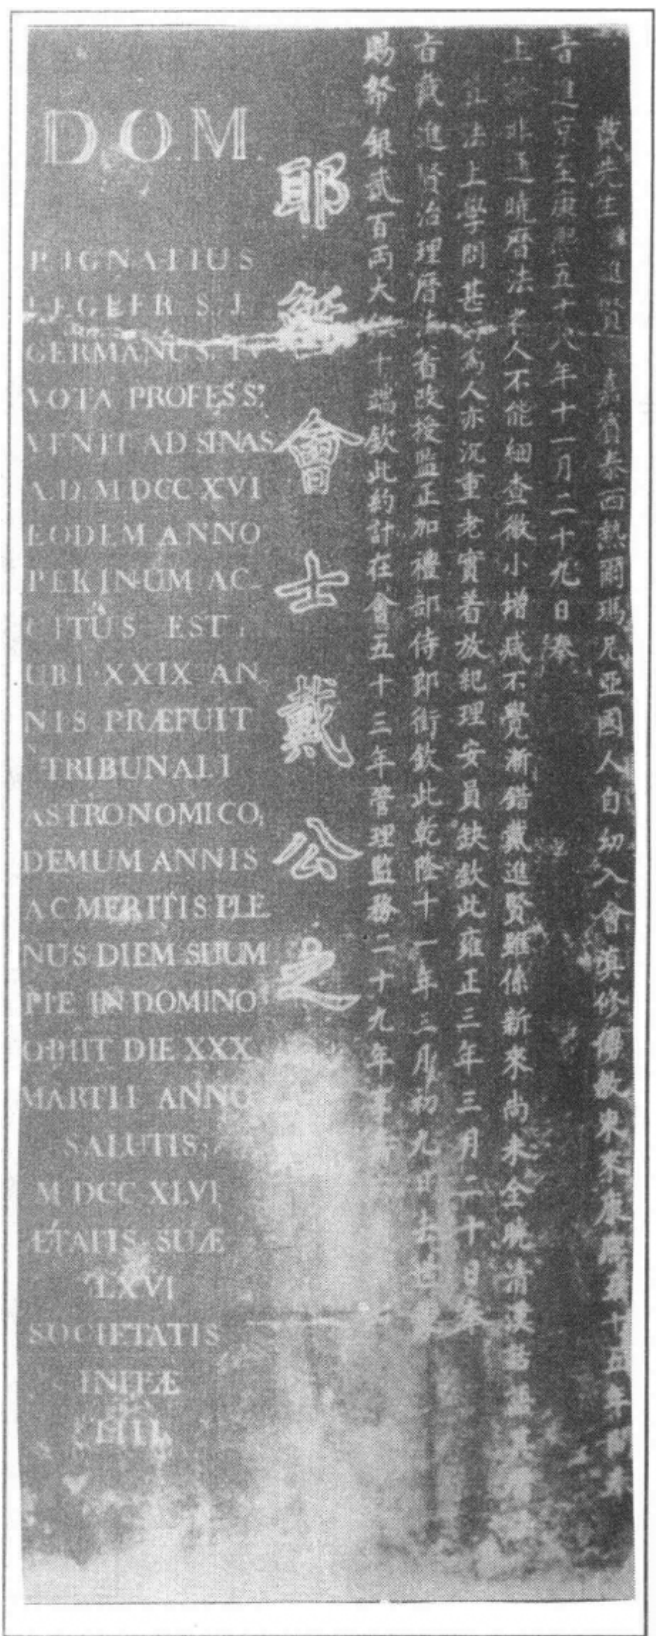 D.O.M.
P. IGNATIUS
KEGLER S. J.
GERMANUS. IV
VOTA PROFESSꝰ
VENIT AD SINAS
A.D. MDCCXVI
EODEM ANNO
PEKINUM AC-
CITUS EST:
UBI XXIX AN
NIS PRÆFUIT
TRIBUNALI
ASTRONOMICO;
DEMUM ANNIS
AC MERITIS PLE
NUS DIEM SUUM
PIE IN DOMINO
OBIIT DIE XXX
MARTII ANNO
SALUTIS:
MDCCXLVI
ÆTATIS SUÆ
LXVI
SOCIETATIS
INITÆ
LIII
耶穌會士戴公之
戴先生諱進賢 嘉賓泰西熱爾瑪尼亞國人自幼入會真修傳教東來康熙五十五年
旨進京至康熙五十八年十一月二十九日奉
上 非通曉曆法之人不能細查微小增減不覺漸錯戴進賢雖係新來尚未全曉清漢
法上學問甚好為人亦沉重老實着放紀理安員缺欽此雍正三年三月二十日奉
旨戴進賢治理曆法着改授監正加禮部侍郎銜欽此乾隆十一年三月初九日去世
賜帑銀貳百兩大 十端欽此約計在會五十三年管理監務二十九年